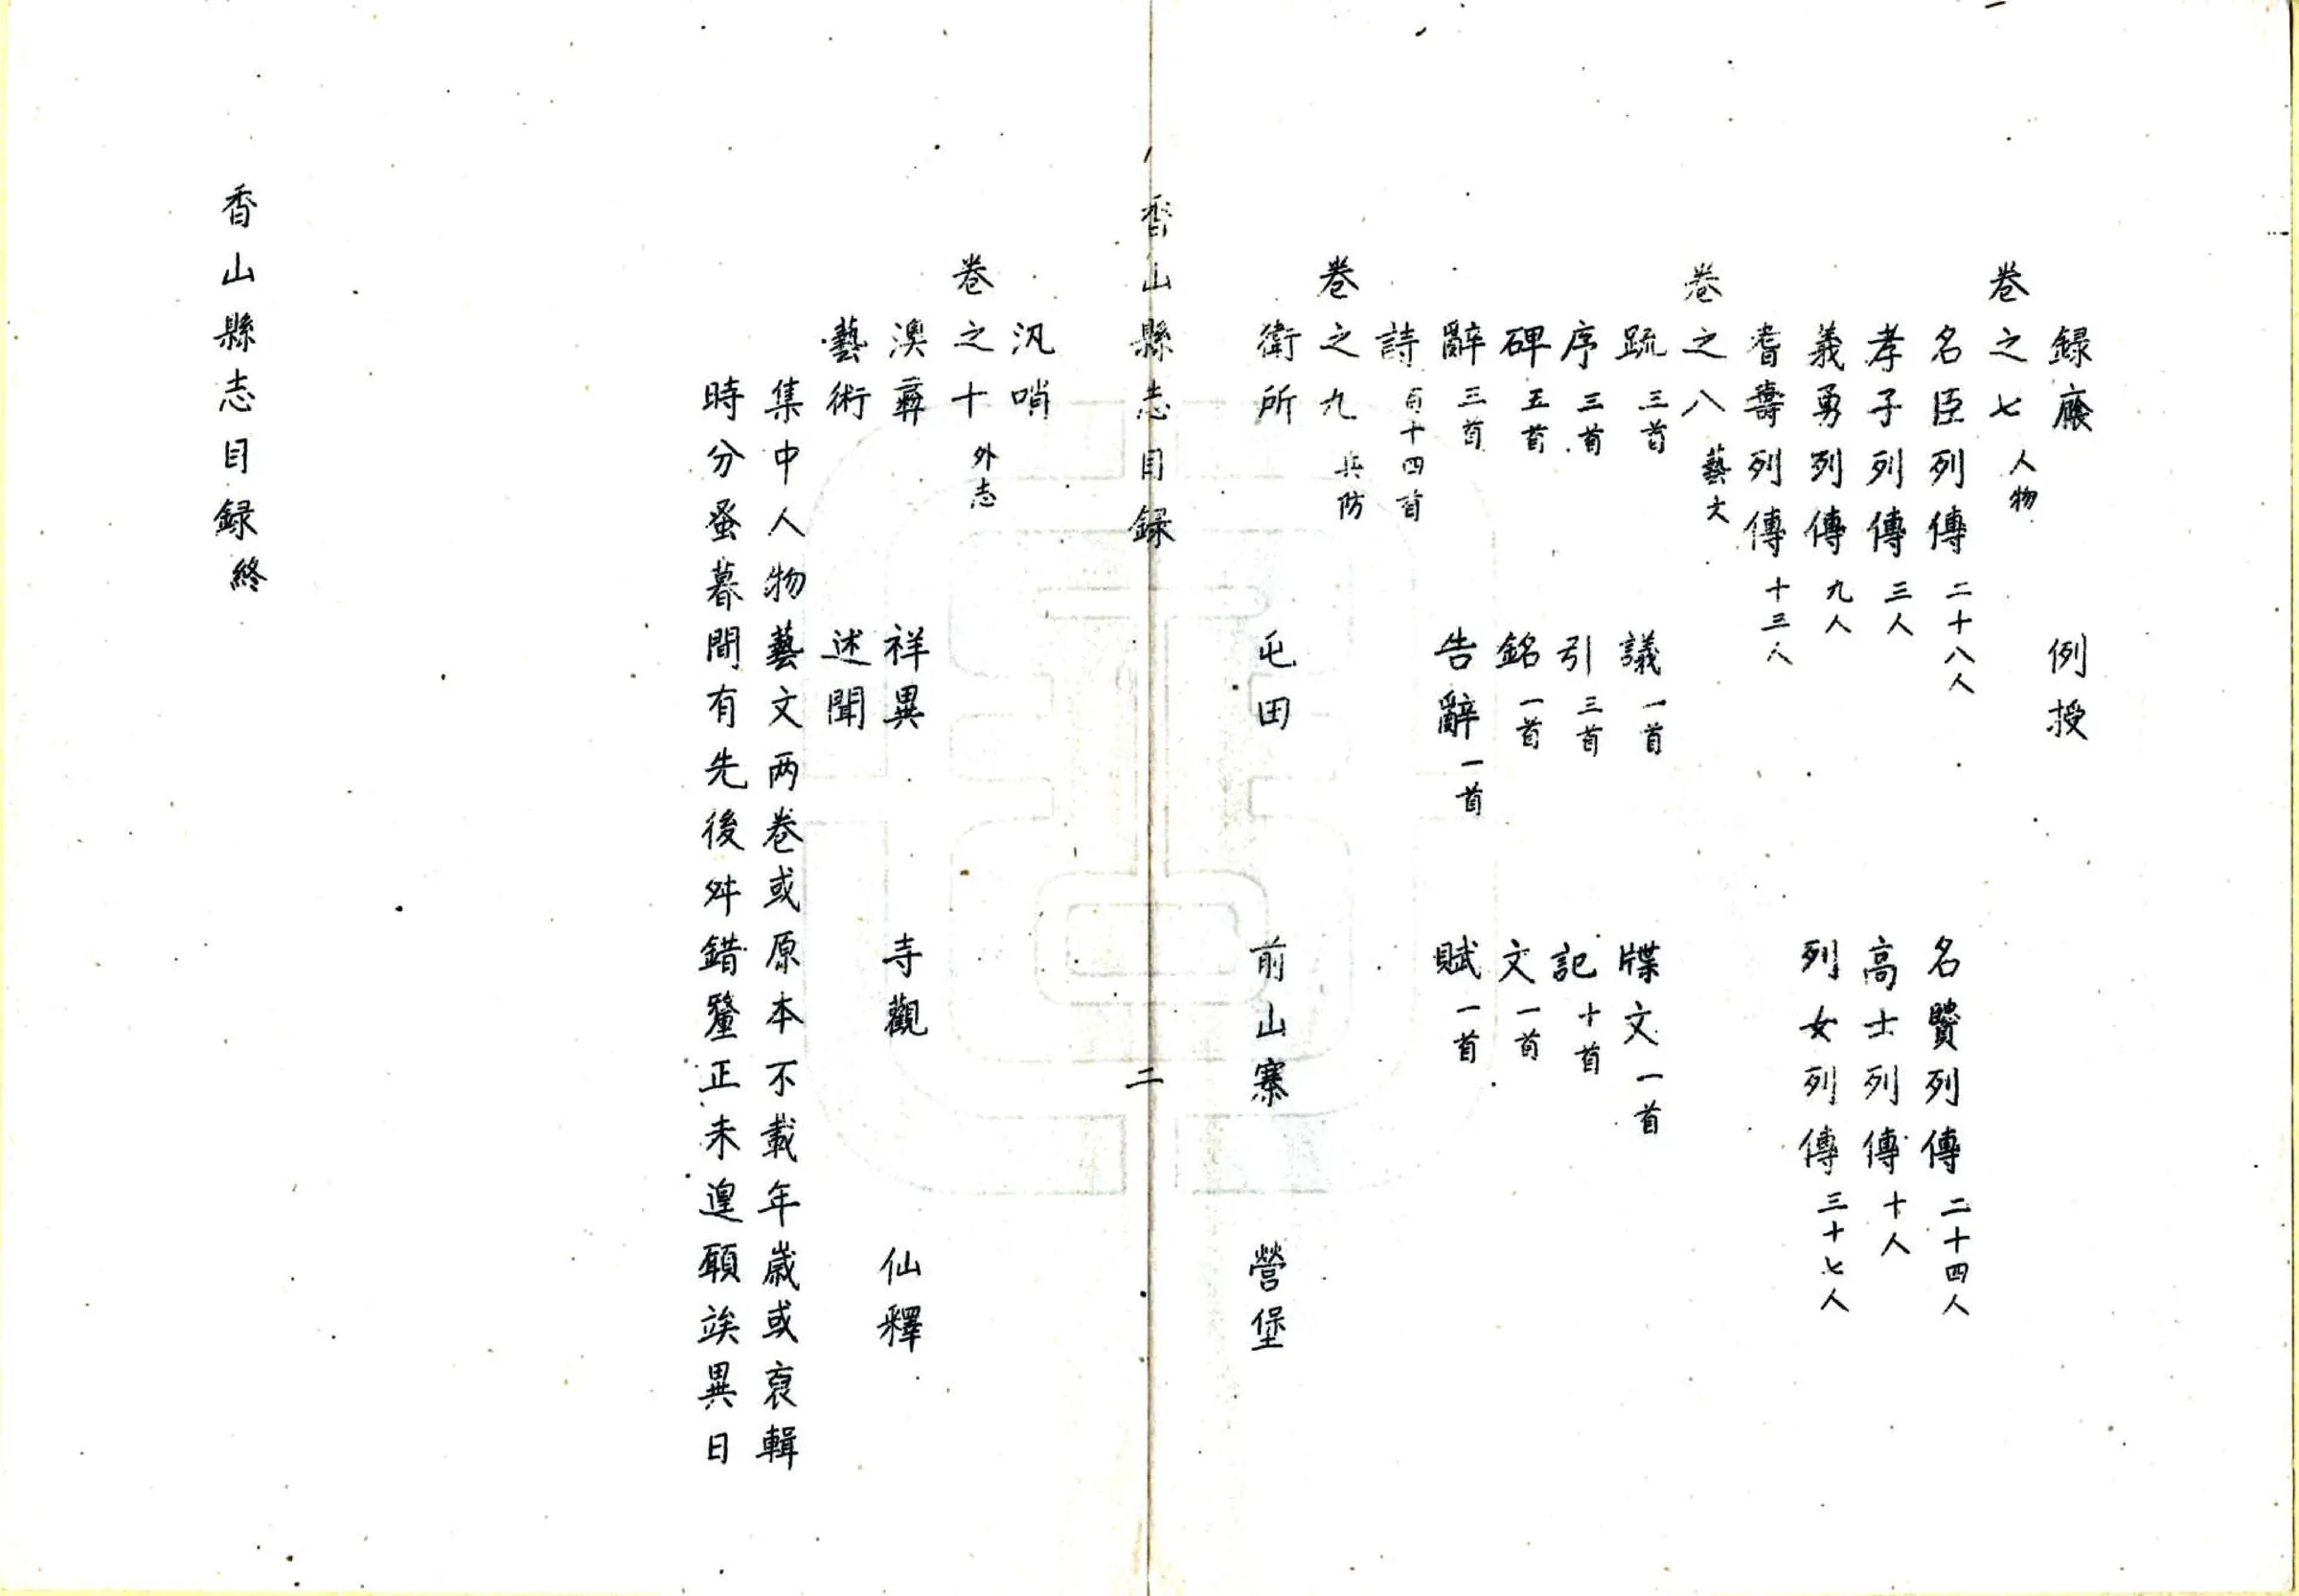 録廕 例授
卷之七 人物
名臣列傳 二十八人 名賢列傳 二十四人
孝子列傳 三人 高士列傳 十人
義勇列傳 九人 列女列傳 三十七人
耆壽列傳 十三人
卷之八 藝文
疏 三首 議 一首 牒文 一首
序 三首 引 三首 記 十首
碑 五首 銘 一首 文 一首
辭 三首 告辭 一首 賦 一首
詩 百十四首
卷之九 兵防
衛所 屯田 前山寨 營堡
香山縣志目録 二
汛哨
卷之十 外志
澳彝 祥異 寺觀 仙釋
藝術 述聞
集中人物藝文两卷或原本不載年歲或裒輯
時分蚤暮間有先後舛錯釐正未遑願竢異日
香山縣志目録終